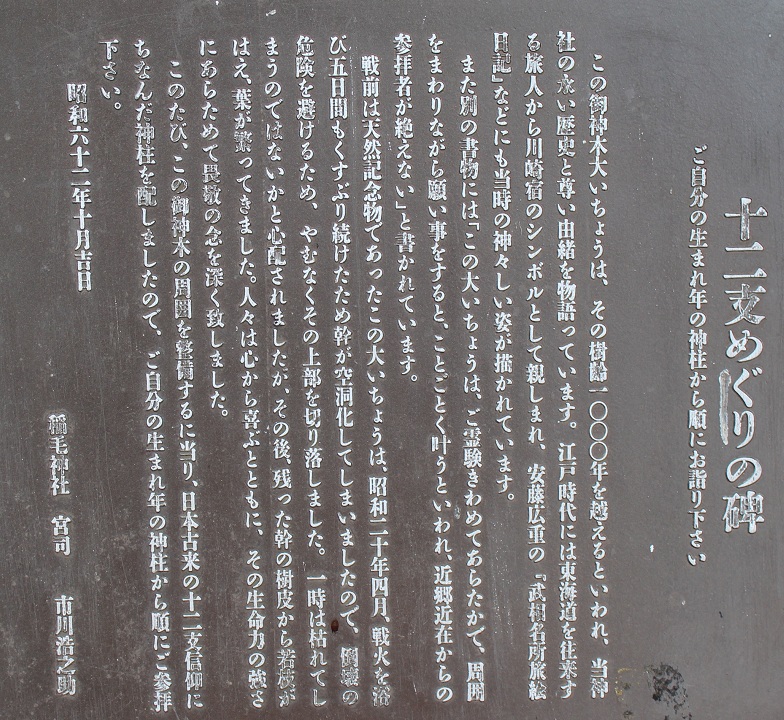 十二支めぐりの碑
ご自分の生まれ年の神柱から順にお詣り下さい
この御神木大いちょうは、その樹齢一〇〇〇年を越えるといわれ、当神
社の永い歴史と尊い由緒を物語っています。江戸時代には東海道を往来す
る旅人から川崎宿のシンボルとして親しまれ、安藤広重の『武相名所旅絵
日記』などにも当時の神々しい姿が描かれています。
また別の書物には「この大いちょうは、ご霊験きわめてあらたかで、周囲
をまわりながら願い事をすると、ことごとく叶うといわれ、近郷近在からの
参拝者が絶えない」と書かれています。
戦前は天然記念物であったこの大いちょうは、昭和二十年四月、戦火を浴
び五日間もくすぶり続けたため幹が空洞化してしまいましたので、倒壊の
危険を避けるため、やむなくその上部を切り落しました。一時は枯れてし
まうのではないかと心配されましたが、その後、残った幹の樹皮から若枝が
はえ、葉が繁ってきました。人々は心から喜ぶとともに、その生命力の強さ
にあらためて畏敬の念を深く致しました。
このたび、この御神木の周囲を整備するに当り、日本古来の十二支信仰に
ちなんだ神柱を配しましたので、ご自分の生まれ年の神柱から順にご参拝
下さい。
昭和六十二年十月吉日
稲毛神社 宮司 市川浩之助